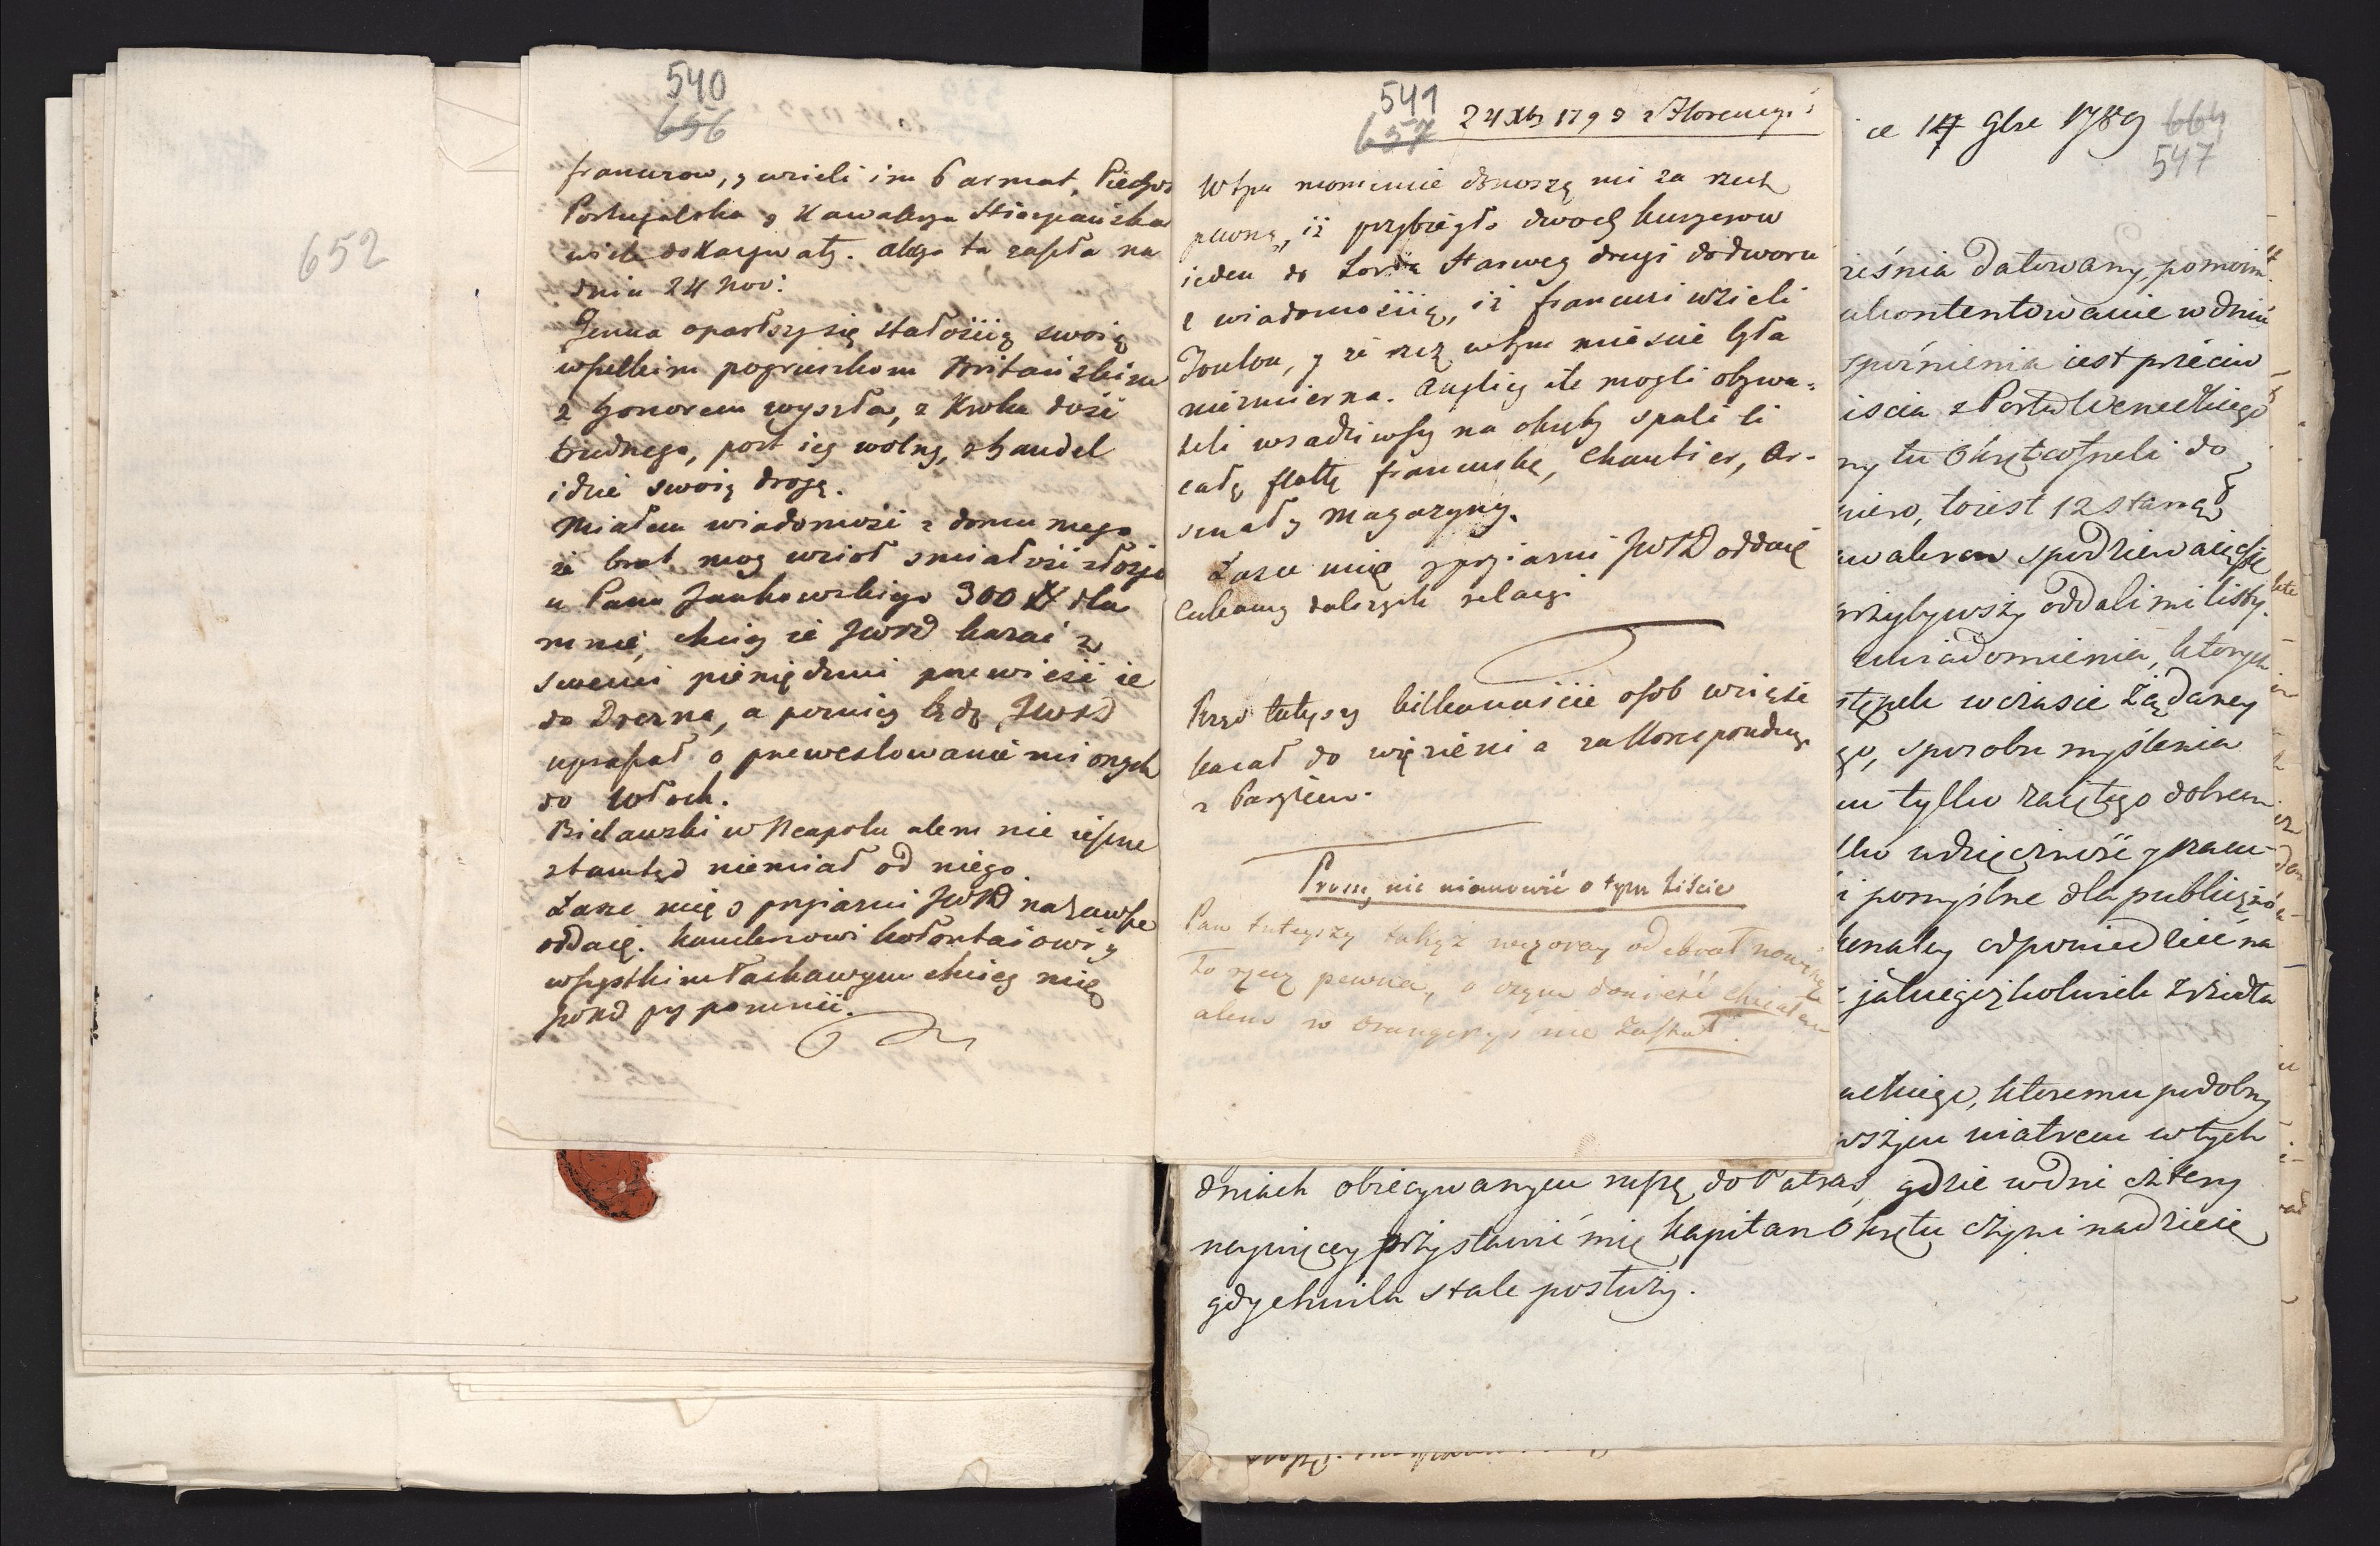 652
540
656
francuzow, y wzieli im 6 armat, Piechot
Portugalska y Kawalerya Hiszpańska
wiele dokazywały. akcya ta zaszła na
dniu 24 Nov:
Genua oparłszy się stałością swoią
wszelkim pogruszkom Britańskim
z honorem wyszła, z Kroku dość
trudnego, port iey wolny, handel
idzie swoią drogą.
Miałem wiadomość z domu mego
że brat moy wzioł smiałość złożyc
u Pana Jankowskiego 300 # dla
mnie, chciey że JWPD kazać z
swemi pieniędzmi przewieść ie
do Drezna, a pozniey będę JWPD
upraszał o przewexlowanie mi onych
do Włoch.
Bielawski w Neapolu alem nie ieszcze
ztamtąd niemiał od niego.
Łasce mię y przyiazni JWPD nazawsze
oddaię. kanclerzowi kołontaiowi y
wszystkim łaskawym chciey mię
JWPD przypomnieć.
541
657 24 Xbr 1793 z Florencyi
W tym momencie donoszą mi za rzecz
pewną, iż przybiegło dwoch kuryerow
ieden do Lorda Harwey drugi do dworu
z wiadomością, iż francuzi wzieli
Toulon, y że rzeź w tym mieście była
niezmierna. Anglicy ile mogli obywa=
teli wsadziwszy na okręty spalili
całą flottę francuską, Chantier, Ar-
senał y magazyny.
Łasce mię y przyiazni JWPD oddaię
Czekamy dalszych relacyi
Rząd tuteyszy kilkanaście osob wziąść
kazał do więzienia za Korespondencyę
z Paryżem.
Proszę nie mianować o tym liście
Pan tuteyszy takoż wczoray odebrał nowinę
to rzecz pewna, o czym donieść chciałem
alem w Orangeryi nie zastał.
ce 14 9bre 1789 664
547
ześnia datowany, pomoim
ukontentowanie w dniu
spoźnienia iest przeciw
iscia z Portu Weneckiego
ny tu Okręt cofneli do
niero, toiest 12 stanął
awalerow spodziewaiąc się
przybywszy oddali mi listy.
uwiadomienia, ktorych
stępek wczasie żądaney
go, sposobu myślenia
m tylko zaiętego dobrem
lko wdzięczność y
i pomyślne dla publicznó
konaley odpowiedzieć na
z jakiegożkolwiek źrzodła
ackiego, ktoremu podobny
wszym wiatrem w tych
dniach obiecywanym ruszę do Patras, gdzie w dni cztery
naywięcey przystawić mię kapitan Okrętu czyni nadzieię
gdy chwila stale posłuży.